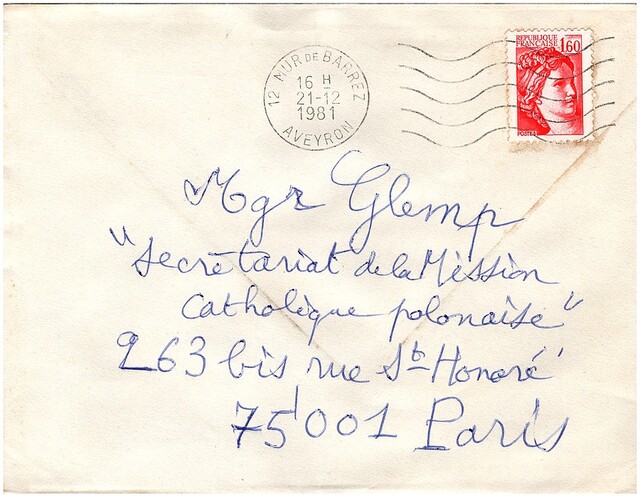 12 MUR DE BARREZ
16 H
21-12
1981
AVEYRON
REPUBLIQUE
FRANCAISE 1,60
POSTES
Mgr Glemp
"Secrétariat de la Mission
Catholique polonaise"
263 bis rue St-Honoré
75001 Paris